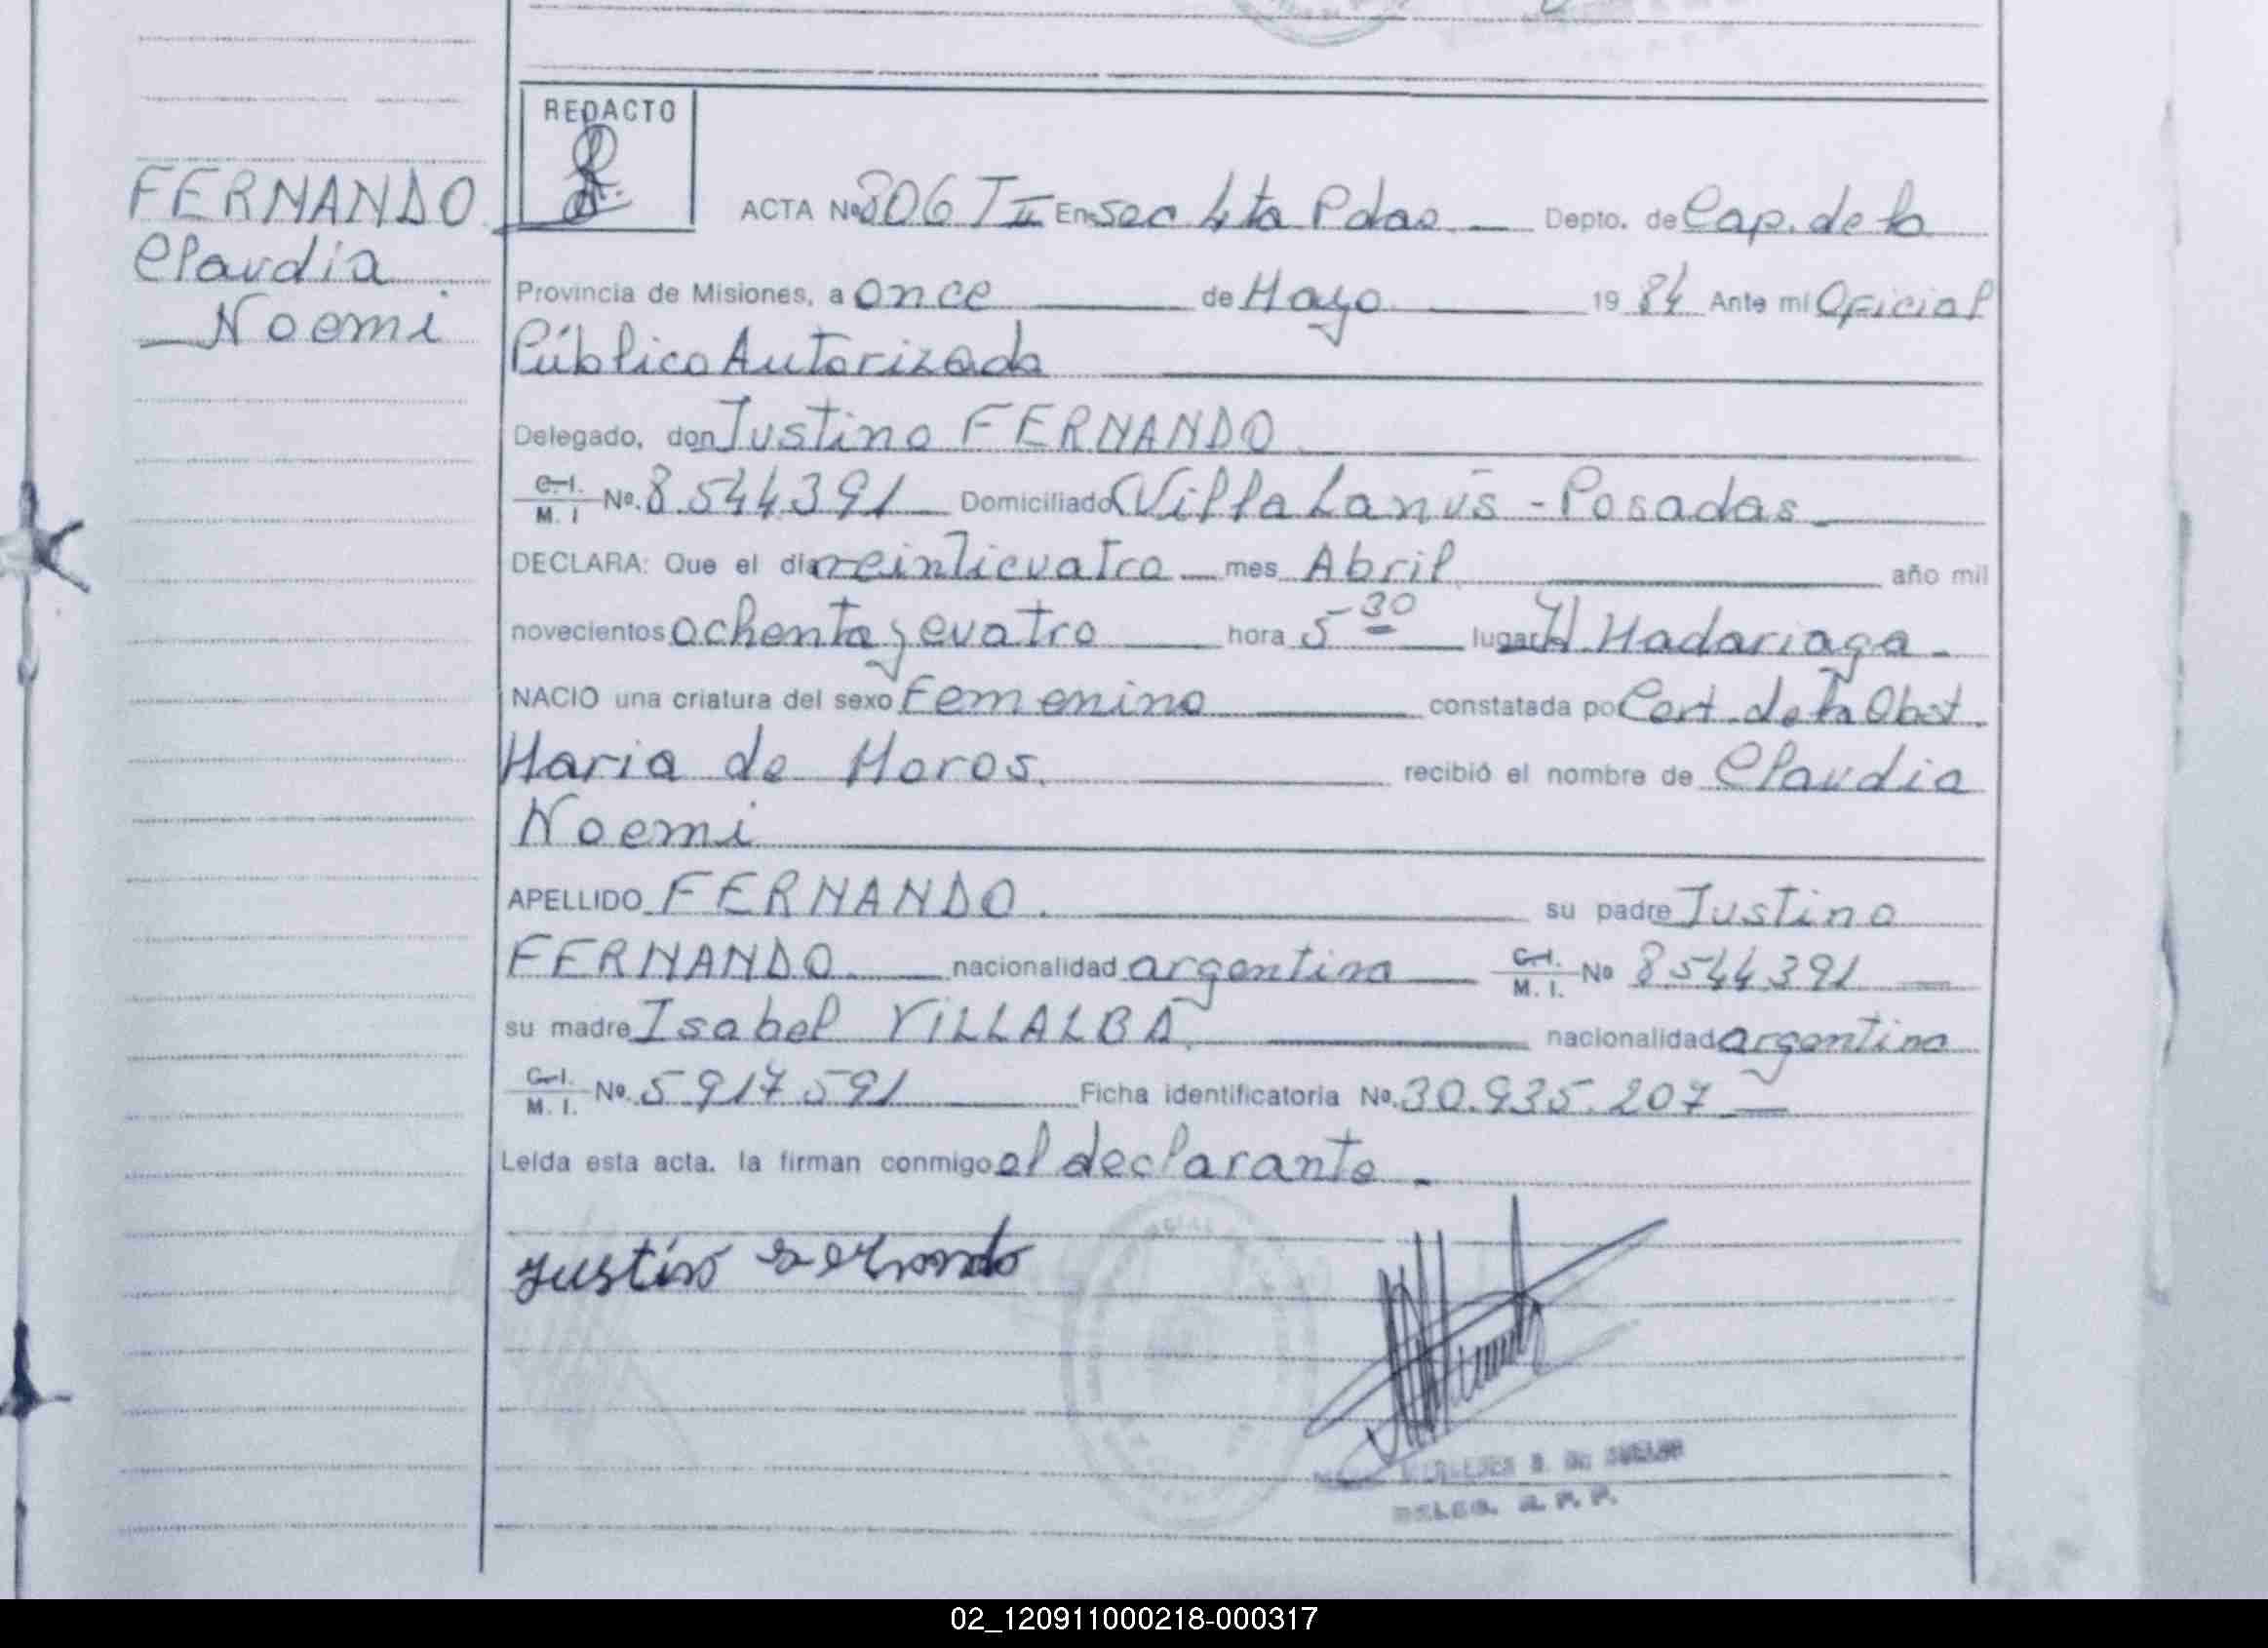 REDACTO
FERNANDO
Claudia
Noemi
ACTA Nº 806 T II En sec 4ta Pdas. Depto. de Cap. de la
Provincia de Misiones, a once de Mayo 19 84 Ante mi Oficial
Público Autorizada
Delegado, don Justino FERNANDO
C.I. M. I Nº. 8.544.391 Domiciliado Villa Lanús - Posadas
DECLARA: Que el día veinticuatro mes Abril año mil
novecientos ochenta y cuatro hora 5 30 lugar H. Madariaga.
NACIO una criatura del sexo Femenino constatada por Cert. de la Obst.
Maria de Moros. recibió el nombre de Claudia
Noemi
APELLIDO FERNANDO. su padre Justino
FERNANDO nacionalidad argentina C.I. M. I. Nº 8.544.391
su madre Isabel VILLALBA. nacionalidad argentina
C.I. M. I. Nº. 5.917.591 Ficha identificatoria Nº. 30.935.207
Leída esta acta. la firman conmigo el declarante.
Justino Fernando
DELEG. R. P. P.
02_120911000218-000317